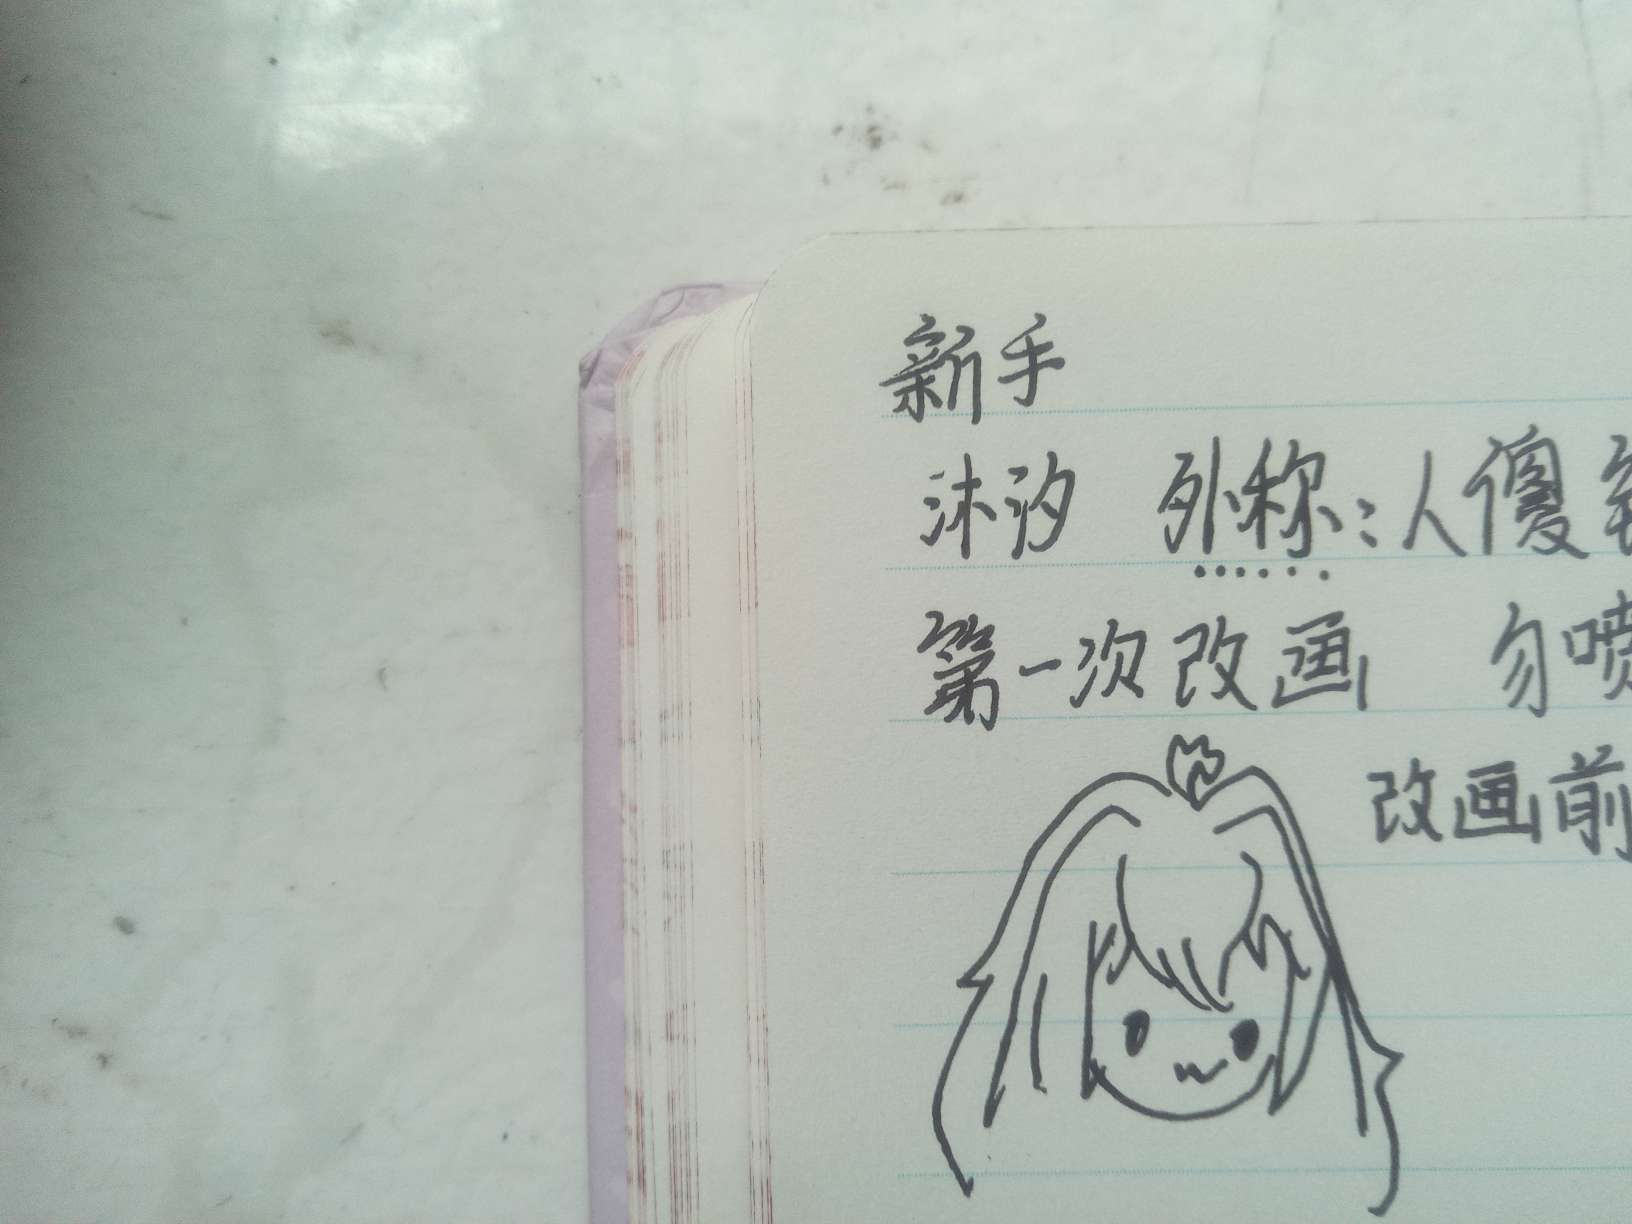 新手
沐汐 外称:人傻
第一次改画 勿喷
改画前